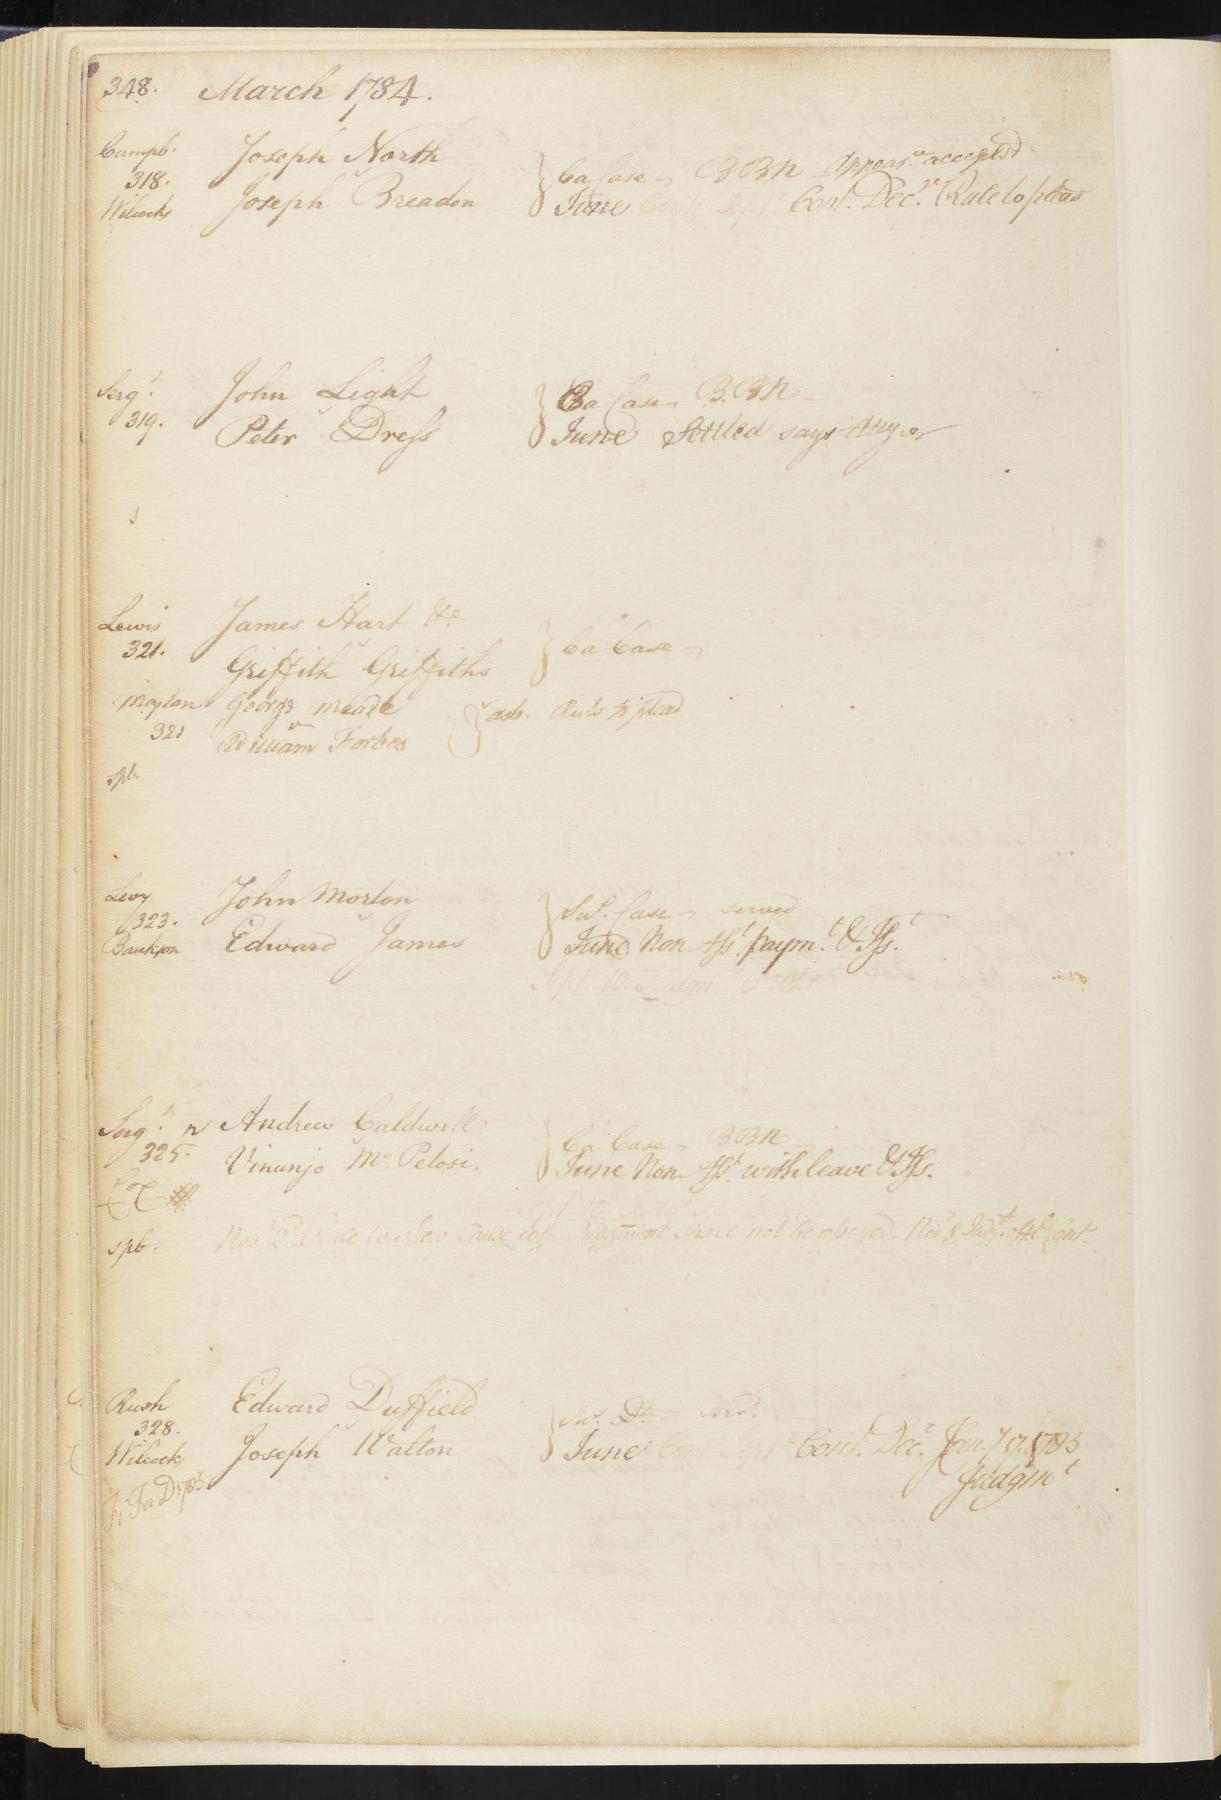 348. March 1784.
Campb. Joseph North
318. v
Wilcocks Joseph Breadon
Ca Case BBN Appear.ce accepted
June Cont. Sept. Cont. Dec.r Rule to plead
Serg.t John Light
319. v
Peter Dress
Ca Case BBN
June Settled says
Lewis James Hart &c
321. v
Griffith Griffiths
Ca Case
Moylan George Meade
321 v
William Forbes
cab. Rule to plead
spb
Levy John Morton
323. v
Bankson Edward James
Sus. Case served
June Non Ass.t paym.t & Iss.t
Sept. 10 Judgm.t
Serg.t n Andrew Caldwell
325. v
Vinunjo M. Pelosi.
Ca Case BBN
June Non Ass.t with leave & Iss.
spb. Nov. Rule to shew Cause why Judgment shall not be opened. Nov.r 8 Cont.
Rush Edward Duffield
328. v
Wilcock Joseph Walton
Sus. D.o serv.d
June Cont. Sept. Cont. Dec.r Jan.y 1785
Judgm.t
Fi Fa